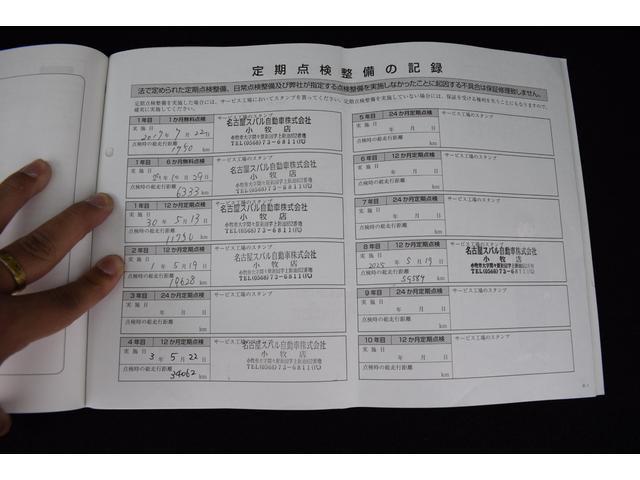 定期点検整備の記録
法で定められた定期点検整備、日常点検整備及び弊社が指定する点検整備を実施しなかったことに起因する不具合は保証修理致しません。
定期点検整備を実施した場合には、サービス工場においてスタンプを貰ってください。定期点検整備を実施していない場合には、保証を受ける権利を失うことにもなりますので、
確実に実施してください。
1年目 1か月無料点検 サービス工場のスタンプ
実施日
2017年7月22日
点検時の総走行距離
1790 km
名古屋スバル自動車株式会社
小牧店
TEL(0568)73-6811㈹
1年目 6か月無料点検 サービス工場のスタンプ
実施日
29年10月29日
点検時の総走行距離
6333 km
名古屋スバル自動車株式会社
小牧店
TEL(0568)73-6811㈹
1年目 12か月定期点検 サービス工場のスタンプ
実施日
30年5月13日
点検時の総走行距離
11790 km
名古屋スバル自動車株式会社
小牧店
TEL(0568)73-6811㈹
2年目 12か月定期点検 サービス工場のスタンプ
実施日
1年5月19日
点検時の総走行距離
19628 km
名古屋スバル自動車株式会社
小牧店
TEL(0568)73-6811㈹
3年目 24か月定期点検 サービス工場のスタンプ
実施日
年 月 日
点検時の総走行距離
km
4年目 12か月定期点検 サービス工場のスタンプ
実施日
3年5月22日
点検時の総走行距離
34062 km
名古屋スバル自動車株式会社
小牧店
TEL(0568)73-6811㈹
5年目 24か月定期点検 サービス工場のスタンプ
実施日
年 月 日
点検時の総走行距離
km
6年目 12か月定期点検 サービス工場のスタンプ
実施日
年 月 日
点検時の総走行距離
km
7年目 24か月定期点検 サービス工場のスタンプ
実施日
年 月 日
点検時の総走行距離
km
8年目 12か月定期点検 サービス工場のスタンプ
実施日
2025年5月19日
点検時の総走行距離
59584 km
名古屋スバル自動車株式会社
小牧店
TEL(0568)73-6811㈹
9年目 24か月定期点検 サービス工場のスタンプ
実施日
年 月 日
点検時の総走行距離
km
10年目 12か月定期点検 サービス工場のスタンプ
実施日
年 月 日
点検時の総走行距離
km